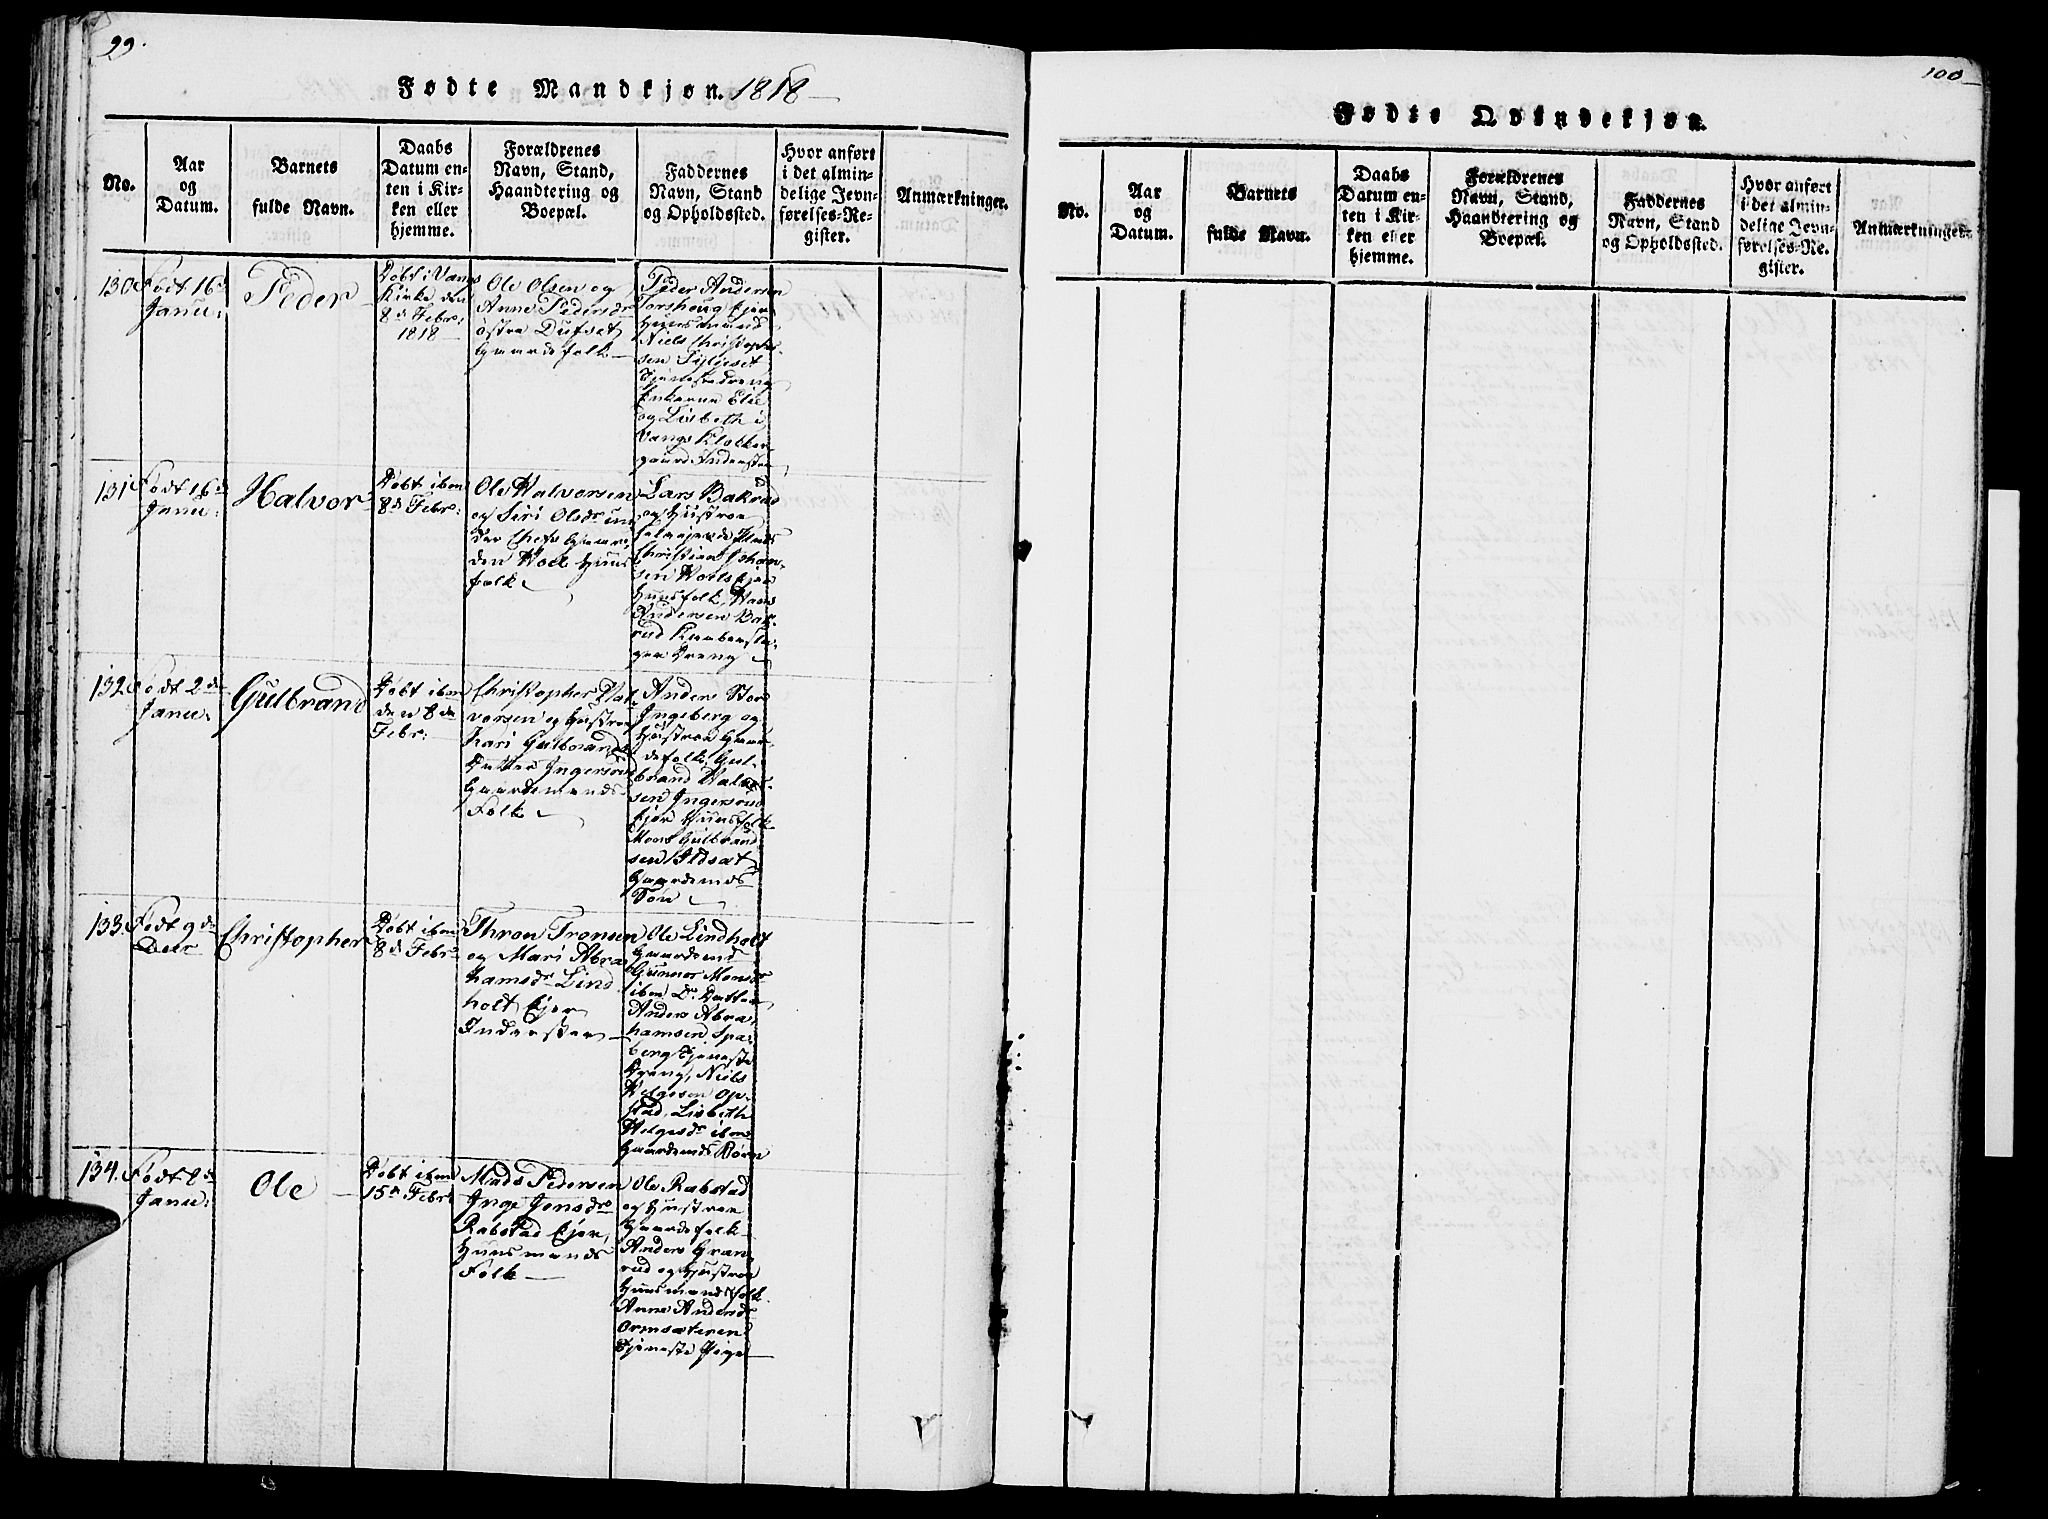 99.
Fødte Mandkjøn. 1818
No.
Aar
og
Datum.
Barnets
fulde Navn.
Daabs
Datum en-
ten i Kir-
ken eller
hjemme.
Forældrenes
Navn, Stand,
Haandtering og
Boepæl.
Faddernes
Navn, Stand
og Opholdssted.
Hvor anført
i det almin-
delige Jevn-
førelses-Re-
gister.
Anmærkninger.
130
Født 16d
Janu:
Peder
Døbt i Vangs
Kirke den
8d Febr:
1818
Ole Olsen og
Anne Pedersdr
østre Dufset
Gaardefolk
Peder Andersen
Torshoug Ejer
Huusmand
Niels Christophe-
sen
Tjenestedreng
Enkerne Elie
og Lisbeth i
Vangs Klokker
gaard Inderster
131
Født 16d
Janu:
Halvor
Døbt ibm
8d Febr:
Ole Halvorsen
og Siri Olsdr un
der Chefs Gaar-
den Hoel Huus
folk
Lars Bakrud
og Hustroe
Selvejerde Folk
Christian Johan-
sen Hoels Ejer
Huusfolk, Hans
Andersen Bak-
rud
Dreng
132.
Født 2d
Janu:
Gulbrand
Døbt ibm
den 8de
Febr:
Christopher Hal-
vorsen og Hustroe
Kari Gulbrands
Datter Ingersrud
Gaardemands
Folk
Anders Stor
Ingeberg og
Hustroe Gaar-
defolk, Gul-
brand Halvor-
sen Ingersrud
Ejer Huusfolk
Mons Gulbrand
sen
Gaardemds
Søn
133.
Født 9d
Decr
Christopher
Døbt ibm
8d Febr
Thron Tronsen
og Mari Abra
hamsdr Lind
holt Ejer
Inderster
Ole Lindholt
Gaardmd
Gunner Monsdr
ibm Dr Datter
Anders Abra-
hamsen Spa-
berg Tjeneste
Dreng, Niels
Helgesen Op-
stad, Lisbeth
Helgesdr ibm
Gaardemds Børn
134.
Født 8d
Janu:
Ole
Døbt ibm
15d Febr
Mads Pedersen
Inge Jensdr
Rabstad Ejer,
Huusmands
Folk
Ole Rabstad
og Hustroe
Gaardefolk
Anders Gran
rud og Hustroe
Huusmandsfolk
Anne Andersdr
Ormsæteren
Tjeneste Pige
100
Fødte Qvindekjøn.
No.
Aar
og
Datum.
Barnets
fulde Navn.
Daabs
Datum en-
ten i Kir-
ken eller
hjemme.
Forældrenes
Navn, Stand,
Haandtering og
Boepæl.
Faddernes
Navn, Stand
og Opholdssted.
Hvor anført
i det almin-
delige Jevn-
førelses-Re-
gister.
Anmærkninger.